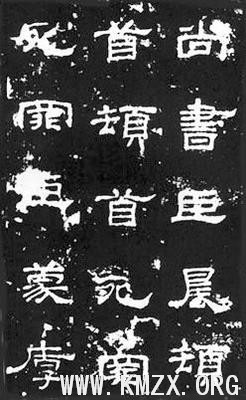 尚書臣晨頓
首頓首死罪
死罪臣蒙厚
WWW.KMZX.ORG